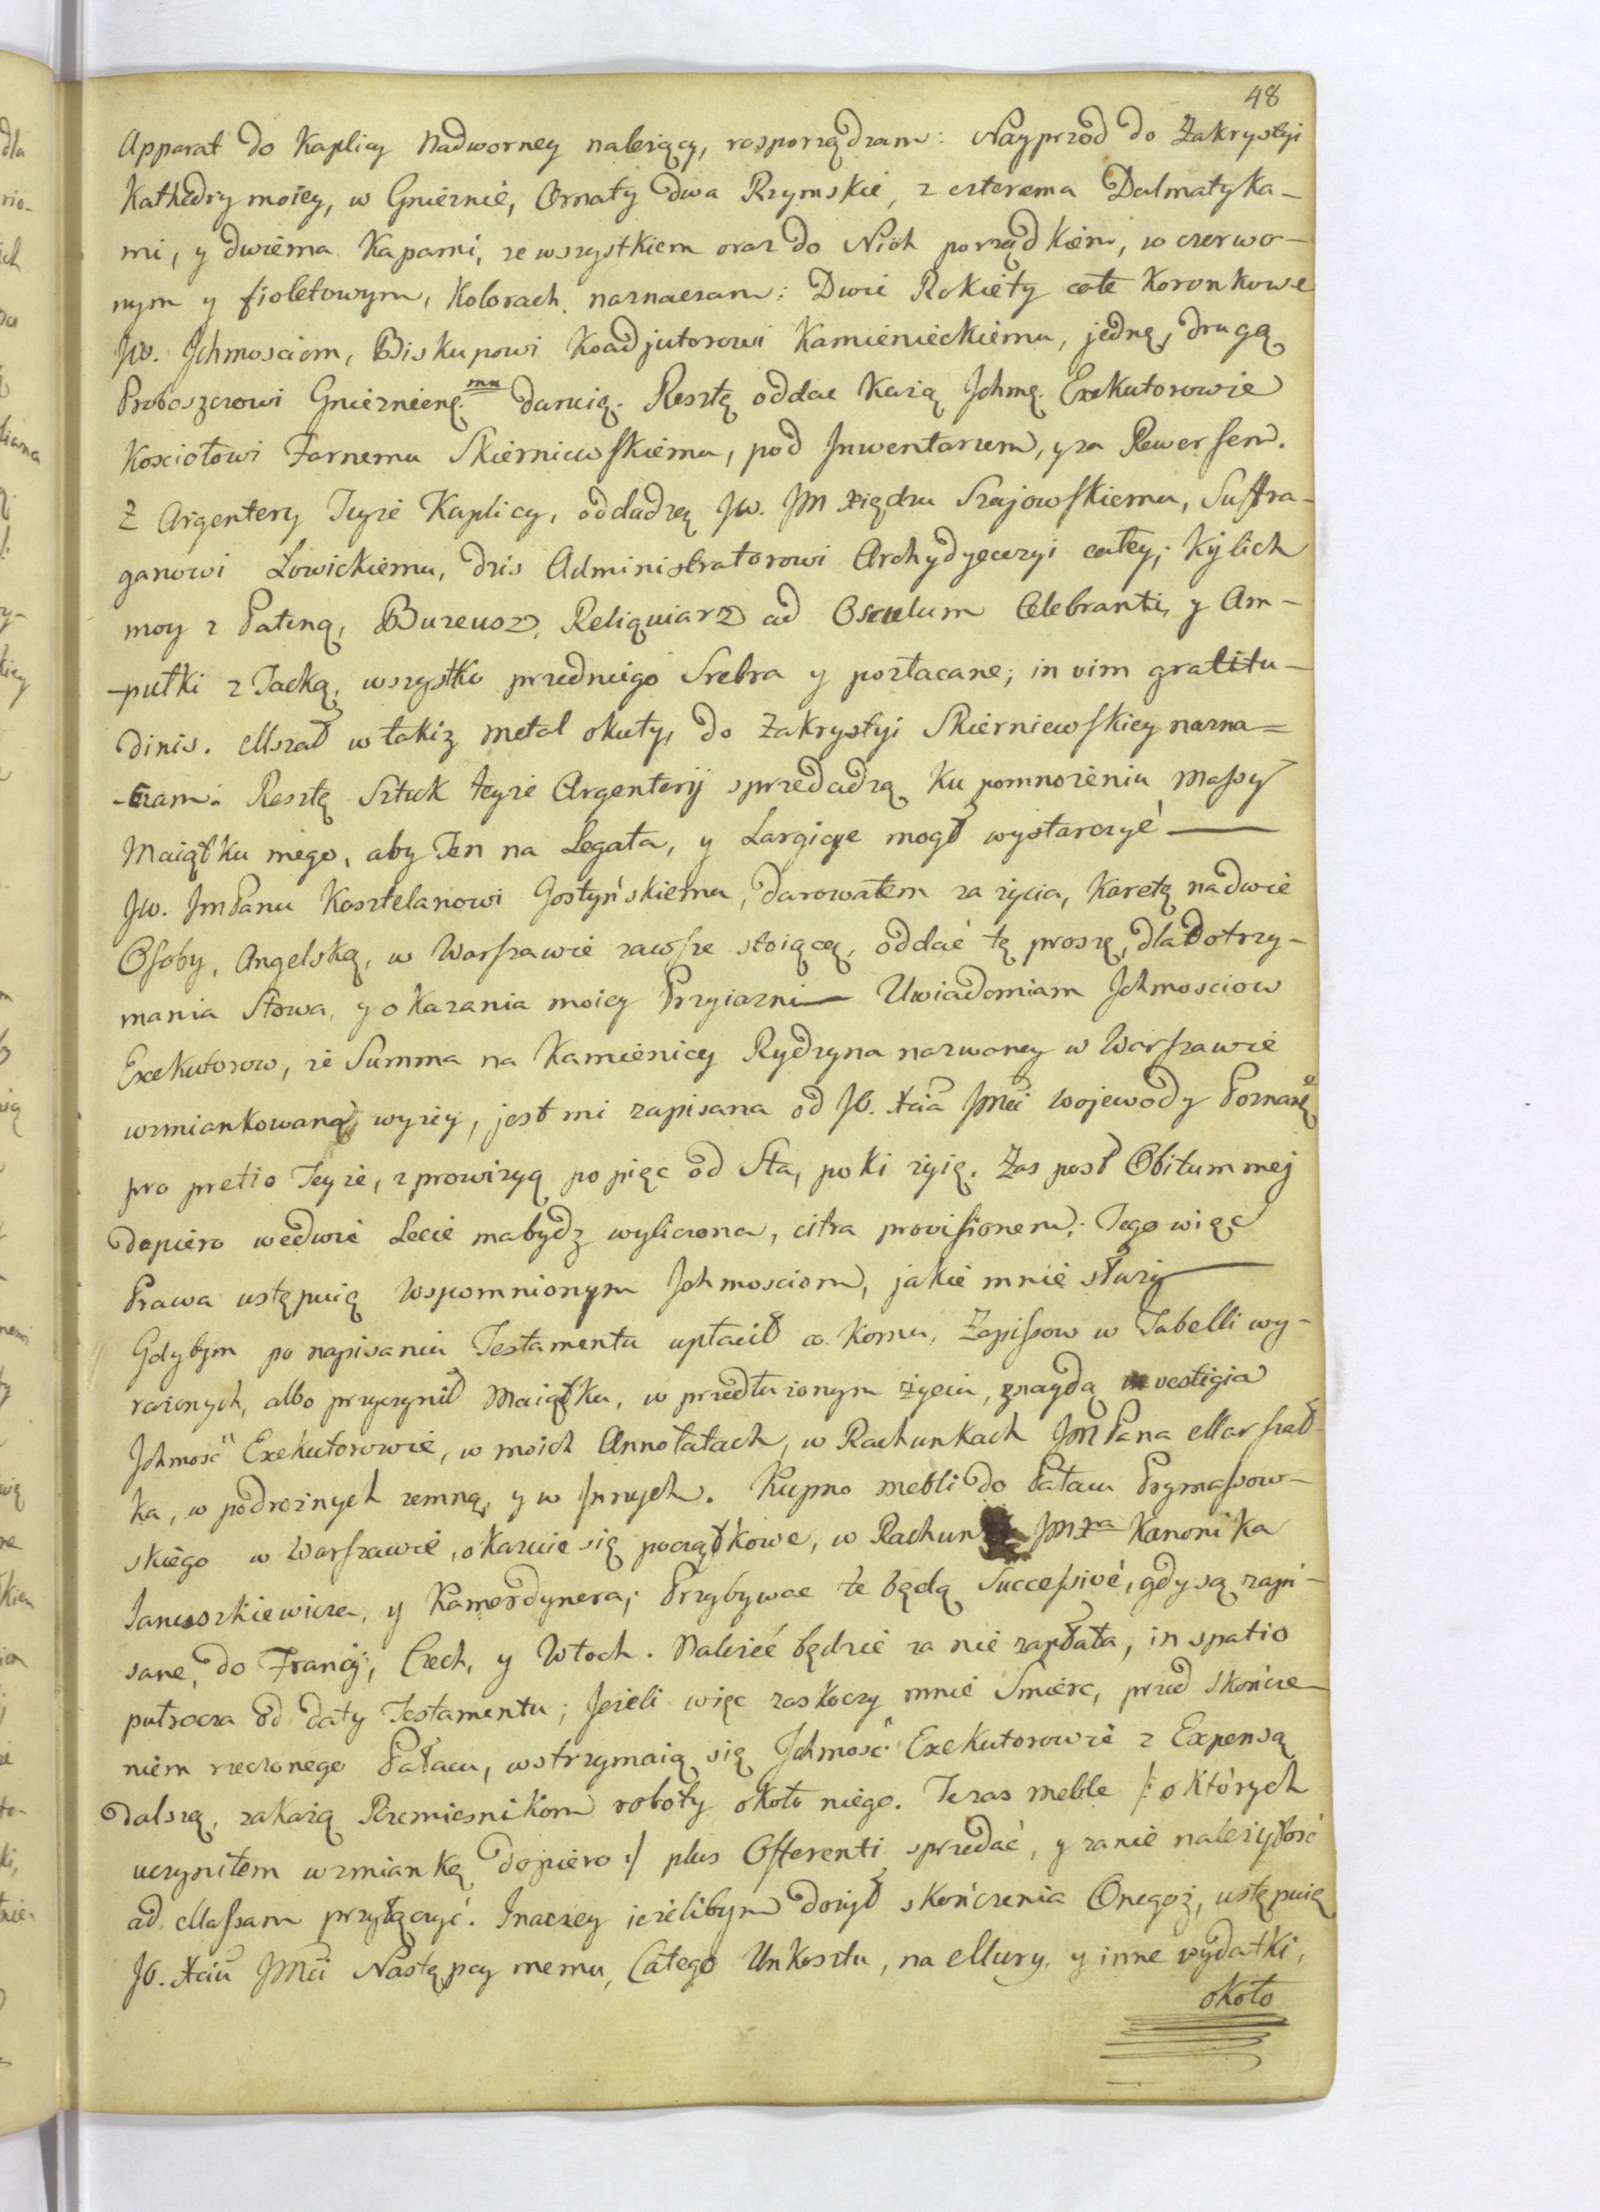 48
Apparat do Kaplicy Nadworney należący, rosporządzam: Nayprzod do Zakrystyi
Kathedry moiey, w Gnieznie, Ornaty dwa Rzymskie, z czterema Dalmatyka-
mi, y dwiema Kapami, ze wszystkiem oraz do Nich porządkiem, w czerwo-
nym y fioletowym, Kolorach naznaczam: Dwie Rokiety całe Koronkowe
Jw. Ichmosciom, Biskupowi Koadjutorowi Kamienieckiemu, jednę, drugą
Proboszczowi Gnieznienę.mu daruię. Resztę oddac Każą Ichmę. Exekutorowie
Kosciołowi Farnemu Skierniewskiemu, pod Inwentarzem, y za Rewersem.
Z Argentery Teyże Kaplicy, oddadzą Jw. Jm xiędzu Szajowskiemu, Suffra-
ganowi Łowickiemu, dzis Administratorowi Archydyecezyi całey, Kylich
moy z Pateną, Buzeusz, Reliquiarz ad Osculum Celebranti, y Am-
-pułki z Tacką, wszystko przedniego Srebra y pozłacane; in vim gratitu-
dinis. Mszał w takiz metal okuty, do Zakrystyi Skierniewskiey nazna=
-czam. Resztę Sztuk teyże Argenterij sprzedadzą Ku pomnożeniu Massy
Maiątku mego, aby Ten na Legata, y Largicye mogł wystarczyć —
Jw. Jm Panu Kasztelanowi Gostyńskiemu, darowałem za życia, Karetę na dwie
Osoby, Angelską, w Warszawie zawsze stoiącą, oddać tę proszę, dla dotrzy-
mania Słowa, y okazania moiey Przyiazni— Uwiadomiam Ichmosciow
Exekutorow, że Summa na Kamienicy Rydzyna nazwaney w Warszawie
wzmiankowana wyżey, jest mi zapisana od Jo. Xcia Jmci Wojewody Poznanę
pro pretio Teyże, z prowizyą po pięc od Sta, poki żyię. Zas post Obitum mej
dopiero we dwie Lecie ma bydz wyliczona, citra provisionem; Tego więc
Prawa ustępuię Wspomnionym Ichmosciom, jakie mnie służy —
Gdybym po napisaniu Testamentu upłacił co Komu, Zapissow w Tabelli wy-
rażonych, albo przyczynił Maiątku, w przedłużonym życiu, znaydą vestigia
Ichmosć Exekutorowie, w moich Annotatach, w Rachunkach Jm Pana Marszał-
ka, w podrożnych zemną, y w Innych. Kupno mebli do Pałacu Prymassow-
skiego w Warszawie, okazuie się początkowe, w Rachun Jm xa Kanonika
Januszkiewicza, y Kamerdynera; Przybywac te będą Successivé, gdy są zapi-
sane, do Francij, Czech, y Włoch. Należeć będzie za nie zapłata, in spatio
pułrocza od daty Testamentu; Jeżeli więc zaskoczy mnie Smierc, przed skończe-
niem rzeczonego Pałacu, wstrzymaią się Ichmosć Exekutorowie z Expensą
dalszą, zakażą Rzemiesnikom roboty około niego. Te zas meble /: o których
uczyniłem wzmiankę dopiero :/ plus Offerenti sprzedać, y za nie należytosć
ad Massam przyłączyć. Inaczey jeżelibym dożył skończenia Onegoż, ustępuię
Jo. Xciu Jmci Następcy memu, Całego Unkosztu, na Mury, y inne wydatki,
około